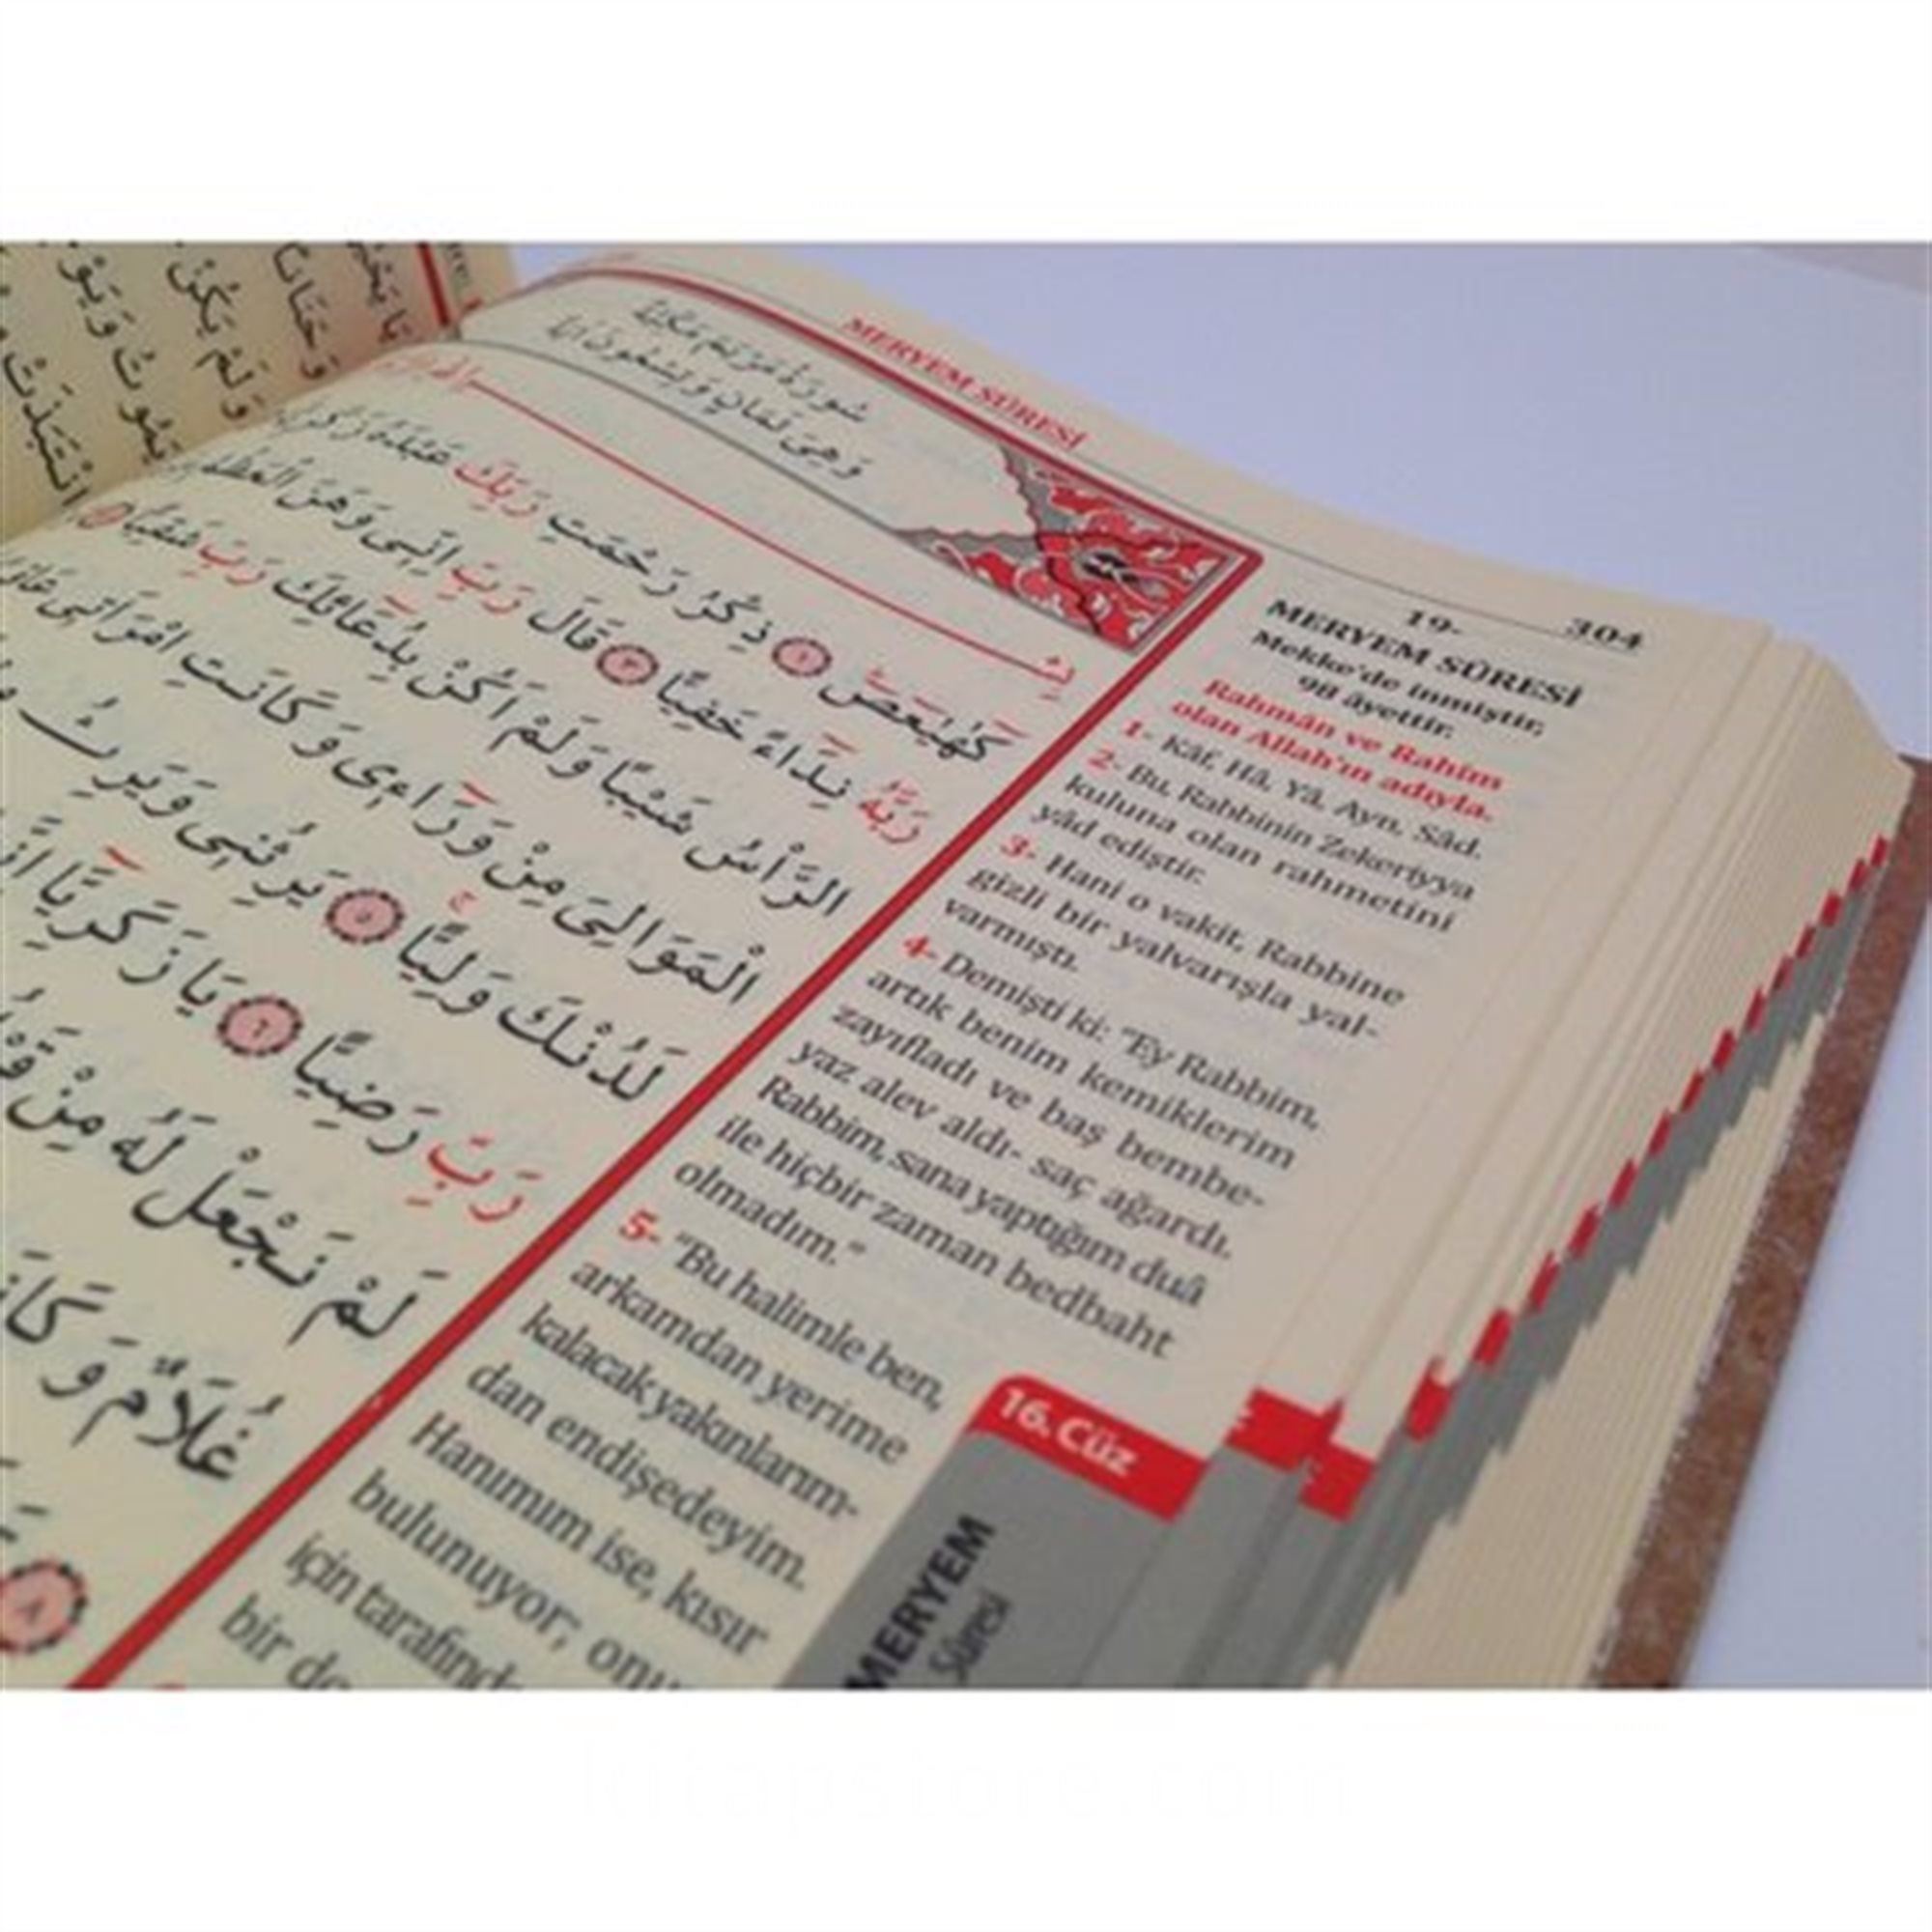 MERYEM SÛRESİ
304
سُورَةُ مَرْيَمَ مَكِّيَّةٌ
وَهِيَ ثَمَانٍ وَتِسْعُونَ اٰيَةً
كٓهٰيٰعٓصٓ ١ ذِكْرُ رَحْمَتِ رَبِّكَ عَبْدَهُ زَكَرِيَّا
رَبَّهُ نِدَٓاءً خَفِيًّا ٣ قَالَ رَبِّ اِنّ۪ي وَهَنَ الْعَظْمُ
الرَّأْسُ شَيْبًا وَلَمْ اَكُنْ بِدُعَٓائِكَ رَبِّ شَقِيًّا
الْمَوَالِيَ مِنْ وَرَٓاء۪ي وَكَانَتِ امْرَاَت۪ي
لَدُنْكَ وَلِيًّا ٥ يَرِثُن۪ي وَيَرِثُ
رَبِّ رَضِيًّا ٦ يَا زَكَرِيَّٓا
لَمْ نَجْعَلْ لَهُ مِنْ
غُلَامٌ وَ
٨
19-
MERYEM SÛRESİ
Mekke'de inmiştir,
98 âyettir.
Rahmân ve Rahîm
olan Allah'ın adıyla.
1- Kâf, Hâ, Yâ, Ayn, Sâd.
2- Bu, Rabbinin Zekeriyya
kuluna olan rahmetini
yâd ediştir.
3- Hani o vakit, Rabbine
gizli bir yalvarışla yal-
varmıştı.
4- Demişti ki: "Ey Rabbim,
artık benim kemiklerim
zayıfladı ve baş bembe-
yaz alev aldı- saç ağardı.
Rabbim, sana yaptığım duâ
ile hiçbir zaman bedbaht
olmadım."
5- "Bu halimle ben,
arkamdan yerime
kalacak yakınlarım-
dan endişedeyim.
Hanımım ise, kısır
bulunuyor; onu
için tarafınd
bir de
16. Cüz
MERYEM
Sûresi